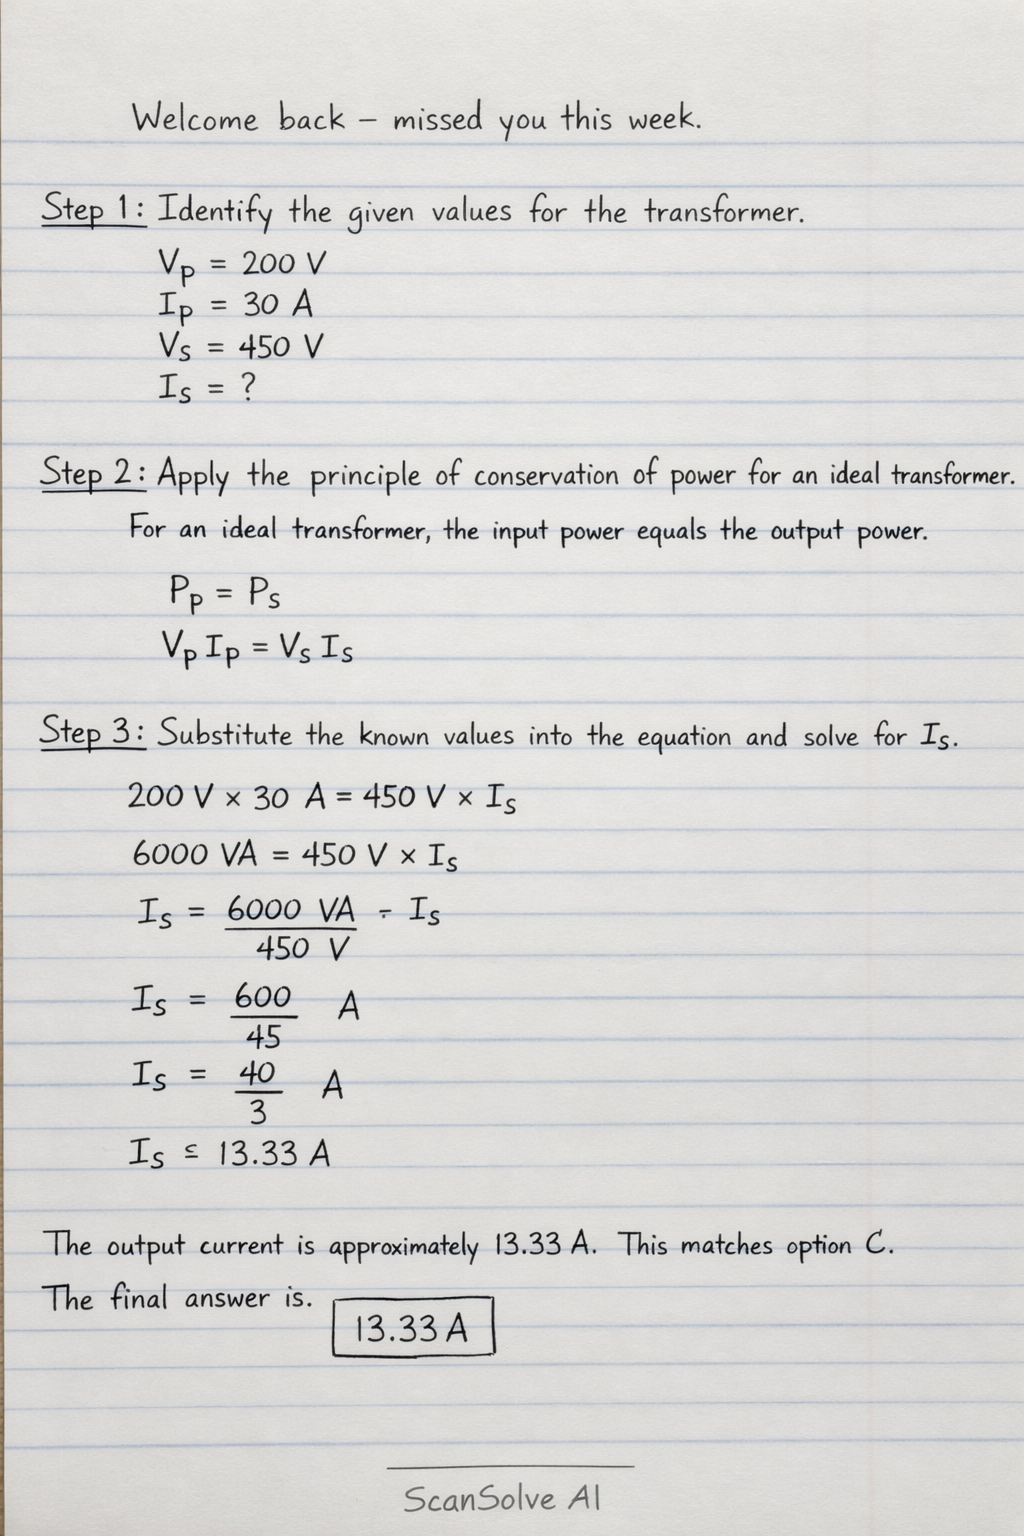 Welcome back – missed you this week.
Step 1: Identify the given values for the transformer.
Vp = 200 V
Ip = 30 A
Vs = 450 V
Is = ?
Step 2: Apply the principle of conservation of power for an ideal transformer.
For an ideal transformer, the input power equals the output power.
Pp = Ps
Vp Ip = Vs Is
Step 3: Substitute the known values into the equation and solve for Is.
200 V × 30 A = 450 V × Is
6000 VA = 450 V × Is
Is = 6000 VA ÷ Is
450 V
Is = 600 A
45
Is = 40 A
3
Is ≤ 13.33 A
The output current is approximately 13.33 A. This matches option C.
The final answer is.
13.33 A
ScanSolve AI